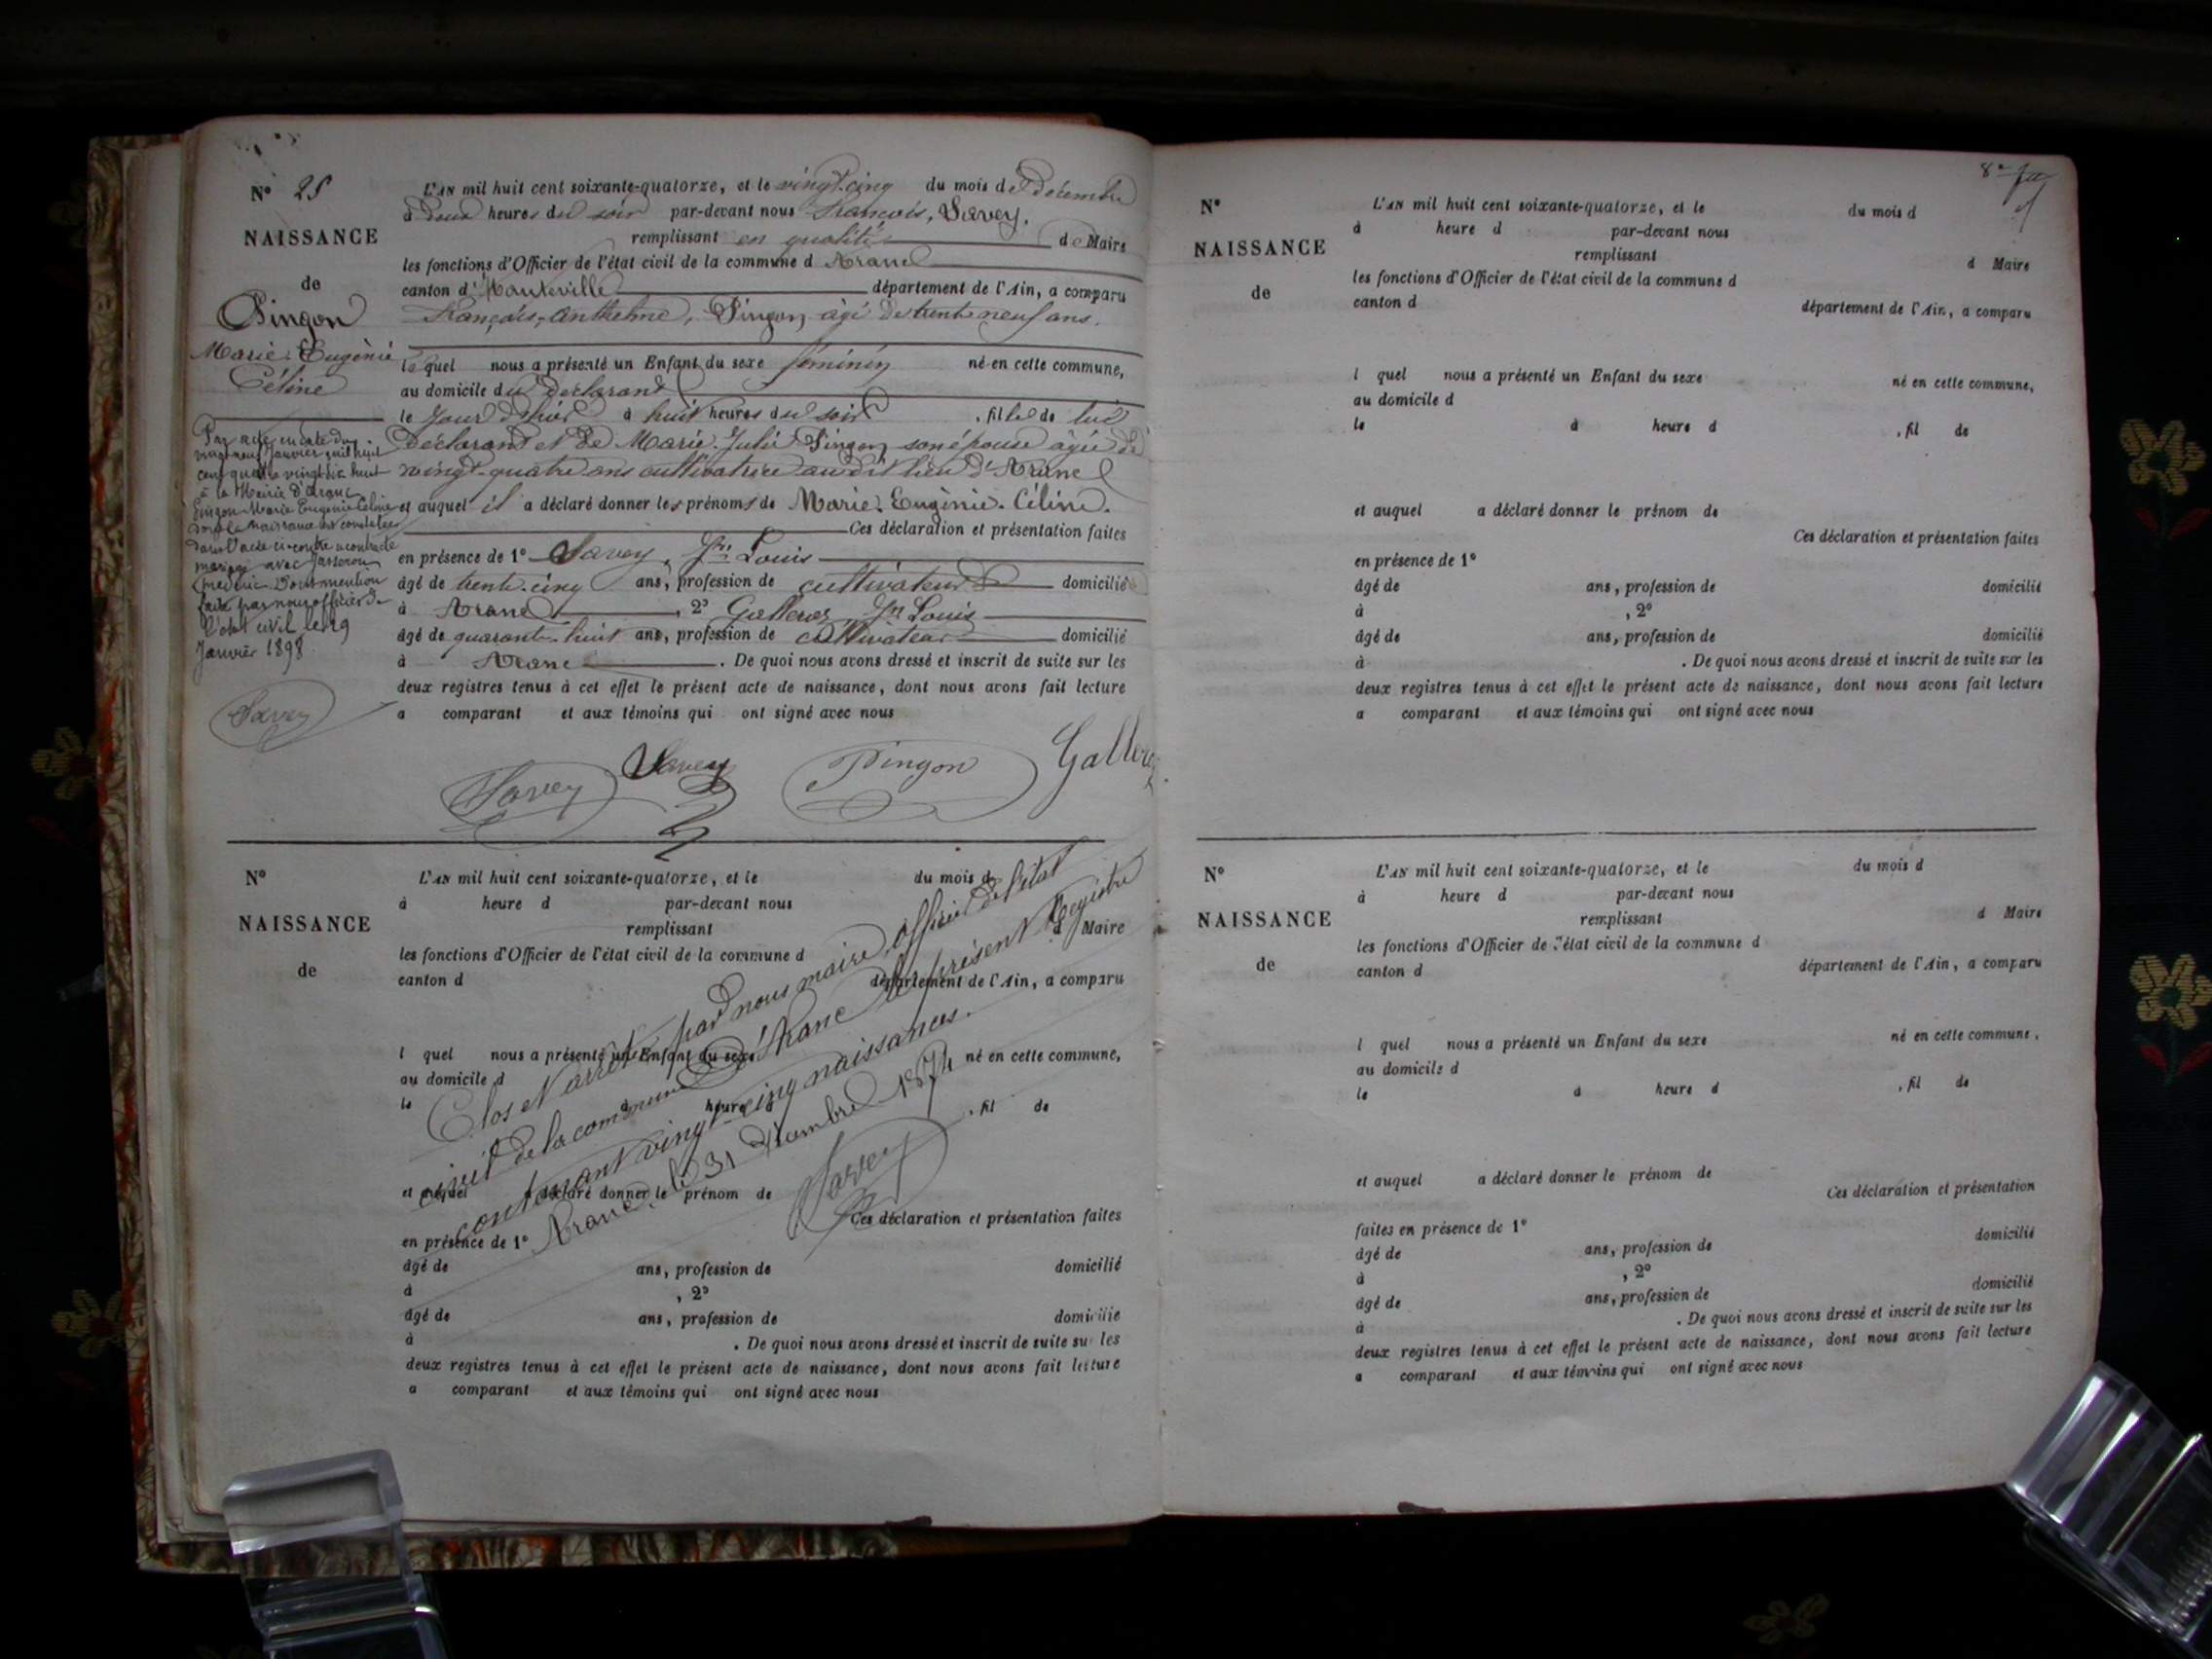 N° 25
NAISSANCE
de
Pingon
Marie Eugénie
Céline
L'AN mil huit cent soixante-quatorze, et le vingt-cinq du mois de décembre
à deux heures du soir par-devant nous François, Savey,
remplissant en qualité de Maire
les fonctions d'Officier de l'état civil de la commune d'Aranc
canton d'Hauteville département de l'Ain, a comparu
François, Anthelme, Pingon âgé de trente neuf ans.
lequel nous a présenté un Enfant du sexe féminin né en cette commune,
au domicile du déclarant
le jour d'hier à huit heures du soir, fille de lui
déclarant et de Marie Julie Pingon son épouse âgée de
vingt-quatre ans cultivatrice audit lieu d'Aranc
et auquel il a déclaré donner les prénoms de Marie. Eugénie. Céline.
Ces déclaration et présentation faites
en présence de 1° Savey, Louis
âgé de trente-cinq ans, profession de cultivateur domicilié
à Aranc, 2° Louis
âgé de quarante-huit ans, profession de cultivateur domicilié
à Aranc. De quoi nous avons dressé et inscrit de suite sur les
deux registres tenus à cet effet le présent acte de naissance, dont nous avons fait lecture
a comparant et aux témoins qui ont signé avec nous
Par acte en date du
vingt neuf Janvier mil huit
cent quatre vingt dix huit
à la Mairie d'Aranc
Pingon Marie Eugénie Céline
dont la naissance est constatée
dans l'acte ci-contre a contracté
mariage avec
Dont mention
faite par nous officier de
l'état civil le 29
Janvier 1898
Savey
Savey Savey Pingon
N°
NAISSANCE
de
L'AN mil huit cent soixante-quatorze, et le du mois d
à heure d par-devant nous
remplissant d Maire
les fonctions d'Officier de l'état civil de la commune d
canton d département de l'Ain, a comparu
l quel nous a présenté un Enfant du sexe né en cette commune,
au domicile d
le à heure d, fil de
et auquel a déclaré donner le prénom de
Ces déclaration et présentation faites
en présence de 1°
âgé de ans, profession de domicilié
à , 2°
âgé de ans, profession de domicilié
à . De quoi nous avons dressé et inscrit de suite sur les
deux registres tenus à cet effet le présent acte de naissance, dont nous avons fait lecture
a comparant et aux témoins qui ont signé avec nous
Clos et arrêté par nous maire officier de l'état
civil de la commune d'Aranc le présent registre
contenant vingt-cinq naissances.
Aranc, le 31 décembre 1874
Savey
N°
NAISSANCE
de
L'AN mil huit cent soixante-quatorze, et le du mois d
à heure d par-devant nous
remplissant d Maire
les fonctions d'Officier de l'état civil de la commune d
canton d département de l'Ain, a comparu
l quel nous a présenté un Enfant du sexe né en cette commune,
au domicile d
le à heure d , fil de
et auquel a déclaré donner le prénom de
Ces déclaration et présentation faites
en présence de 1°
âgé de ans, profession de domicilié
à , 2°
âgé de ans, profession de domicilié
à . De quoi nous avons dressé et inscrit de suite sur les
deux registres tenus à cet effet le présent acte de naissance, dont nous avons fait lecture
a comparant et aux témoins qui ont signé avec nous
N°
NAISSANCE
de
L'AN mil huit cent soixante-quatorze, et le du mois d
à heure d par-devant nous
remplissant d Maire
les fonctions d'Officier de l'état civil de la commune d
canton d département de l'Ain, a comparu
l quel nous a présenté un Enfant du sexe né en cette commune,
au domicile d
le à heure d , fil de
et auquel a déclaré donner le prénom de
Ces déclaration et présentation
faites en présence de 1°
âgé de ans, profession de domicilié
à , 2°
âgé de ans, profession de domicilié
à . De quoi nous avons dressé et inscrit de suite sur les
deux registres tenus à cet effet le présent acte de naissance, dont nous avons fait lecture
a comparant et aux témoins qui ont signé avec nous